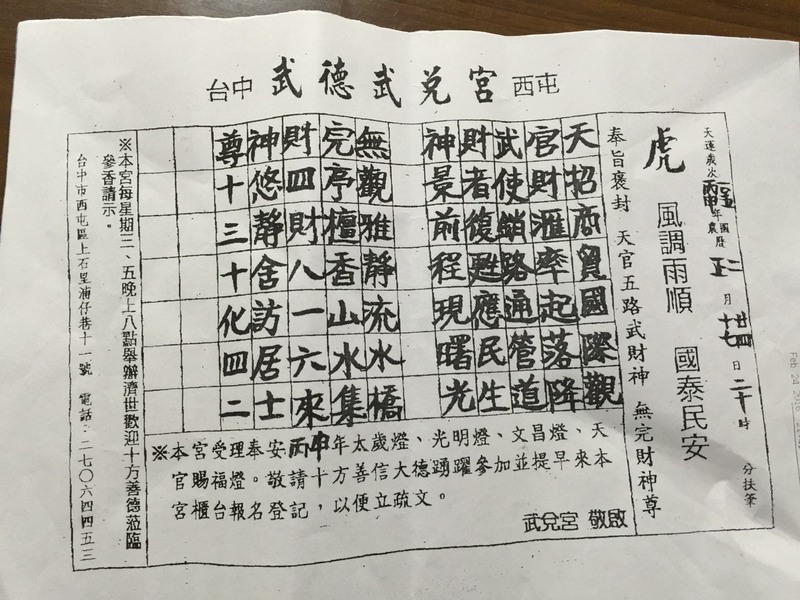 台中 武德武兌宮 西屯
天運歲次丙申年 國曆 農曆 二 正 月 廿四 十七 日 二十時 分扶筆
虎 風調雨順 國泰民安
奉旨褒封 天官五路武財神 無完財神尊
天招商貿國際觀
官財滙率起落降
武使銷路通管道
財者復甦應民生
神景前程現曙光
無觀雅靜流水橋
完亭檀香山水集
財四財八一六來
神悠靜舍訪居士
尊十三十化四二
※本宮受理奉安丙申年太歲燈、光明燈、文昌燈、天
官賜福燈。敬請十方善信大德踴躍參加並提早來本
宮櫃台報名登記，以便立疏文。
武兌宮 敬啟
※本宮每星期三、五晚上八點舉辦濟世歡迎十方善德蒞臨
參香請示。
台中市西屯區上石里湳仔巷十一號 電話：二七〇六四四五三